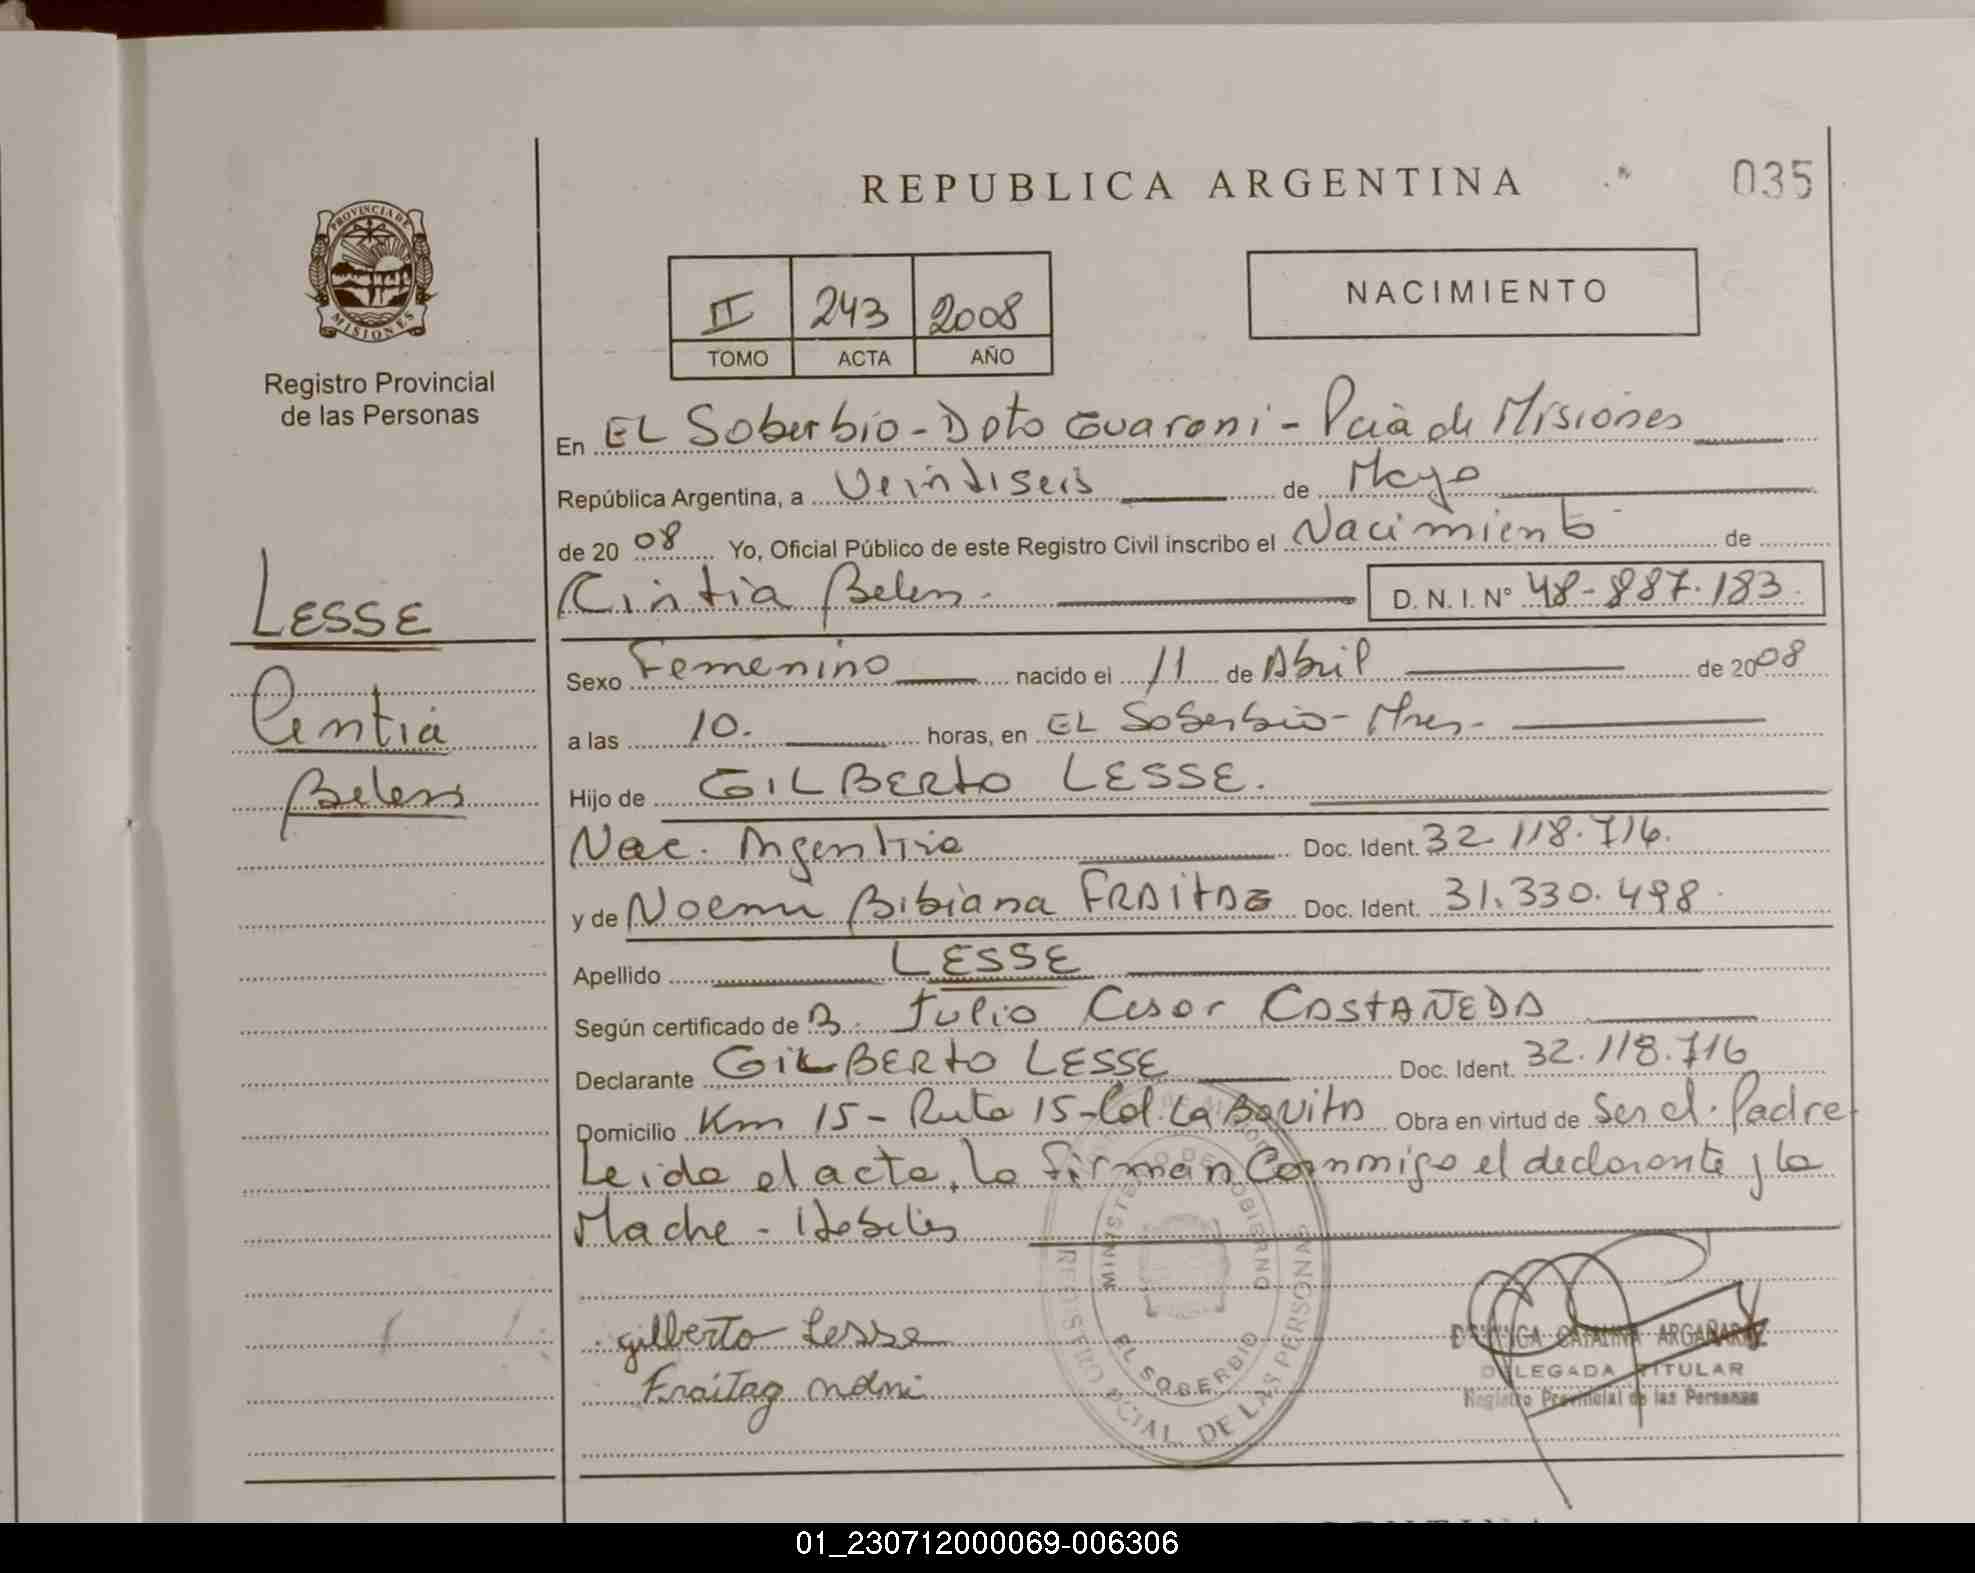 REPUBLICA ARGENTINA
035
PROVINCIA DE
MISIONES
Registro Provincial
de las Personas
II 243 2008
TOMO ACTA AÑO
NACIMIENTO
En EL Soberbio - Dpto Guarani - Pcia de Misiones
República Argentina, a Veintiseis de Mayo
de 2008 Yo, Oficial Público de este Registro Civil inscribo el Nacimiento de
Cintia Belen. D. N. I. N° 48-887.183.
LESSE
Cintia
Belen
Sexo Femenino nacido el 11 de Abril de 2008
a las 10. horas, en EL Soberbio - Mnes.
Hijo de GILBERTO LESSE.
Nac. Argentina Doc. Ident. 32.118.716.
y de Noemi Bibiana FRAITAG Doc. Ident. 31.330.498.
Apellido LESSE
Según certificado de Julio Cesar CASTAÑEDA
Declarante GILBERTO LESSE Doc. Ident. 32.118.716
Domicilio Km 15 - Ruta 15 - Col. La Bonita Obra en virtud de Ser el Padre
Leida el acta, la firman Conmigo el declarante y la
Madre -
gilberto Lesse
Fraitag
MINISTERIO DE GOBIERNO
EL SOBERBIO
DE LAS PERSONAS
CATALINA ARGAÑARAZ
DELEGADA TITULAR
Registro Provincial de las Personas
01_230712000069-006306